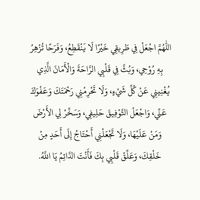 اللَّهُمَّ اجْعَلْ فِي طَرِيقِي خَيْرًا لَا يَنْقَطِعُ، وَفَرَحًا تُزْهِرُ
بِهِ رُوْحِي، وَبُثَّ فِي قَلْبِي الرَّاحَةَ وَالْأَمَانَ الَّذِي
يُغْنِينِي عَنْ كُلِّ شَيْءٍ، وَلَا تَحْرِمْنِي رَحْمَتَكَ وَعَفْوَكَ
عَنِّي، وَاجْعَلْ التَّوْفِيقَ حَلِيفِي، وَسَخِّرْ لِي الْأَرْضَ
وَمَنْ عَلَيْهَا، وَلَا تَجْعَلْنِي أَحْتَاجُ إِلَى أَحَدٍ مِنْ
خَلْقِكَ، وَعَلِّقْ قَلْبِي بِكَ فَأَنْتَ الدَّائِمُ يَا اللَّهُ.